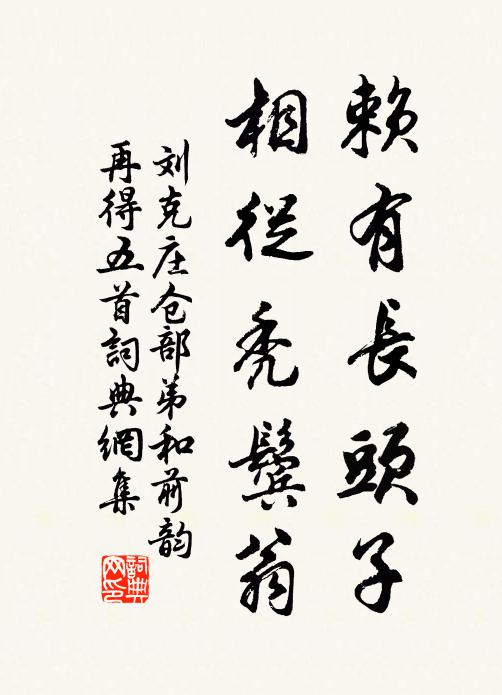 賴有長頭子
相從禿鬢翁
刘克庄仓部弟和前韵
再得五首詞典網集
詞典网印